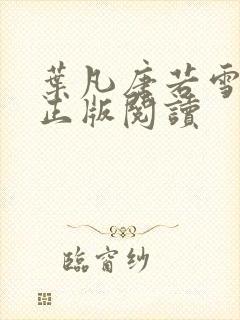 葉凡唐若雪
正版閱讀
臨窗紗